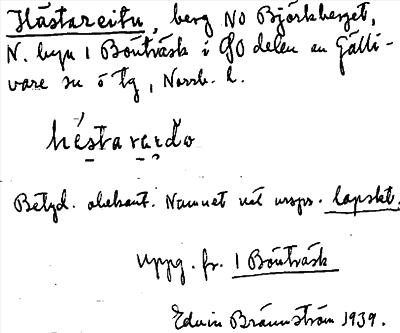 Hästareitu, berg NO Björkberget,
N. byn 1 Bönträsk i SO delen av Gälli-
vare sn ö lg, Norrb. l.
héstaraiðo
Betyd. obekant. Namnet väl urspr. lapskt.
Uppg. fr. 1 Bönträsk
Edvin Brännström 1939.